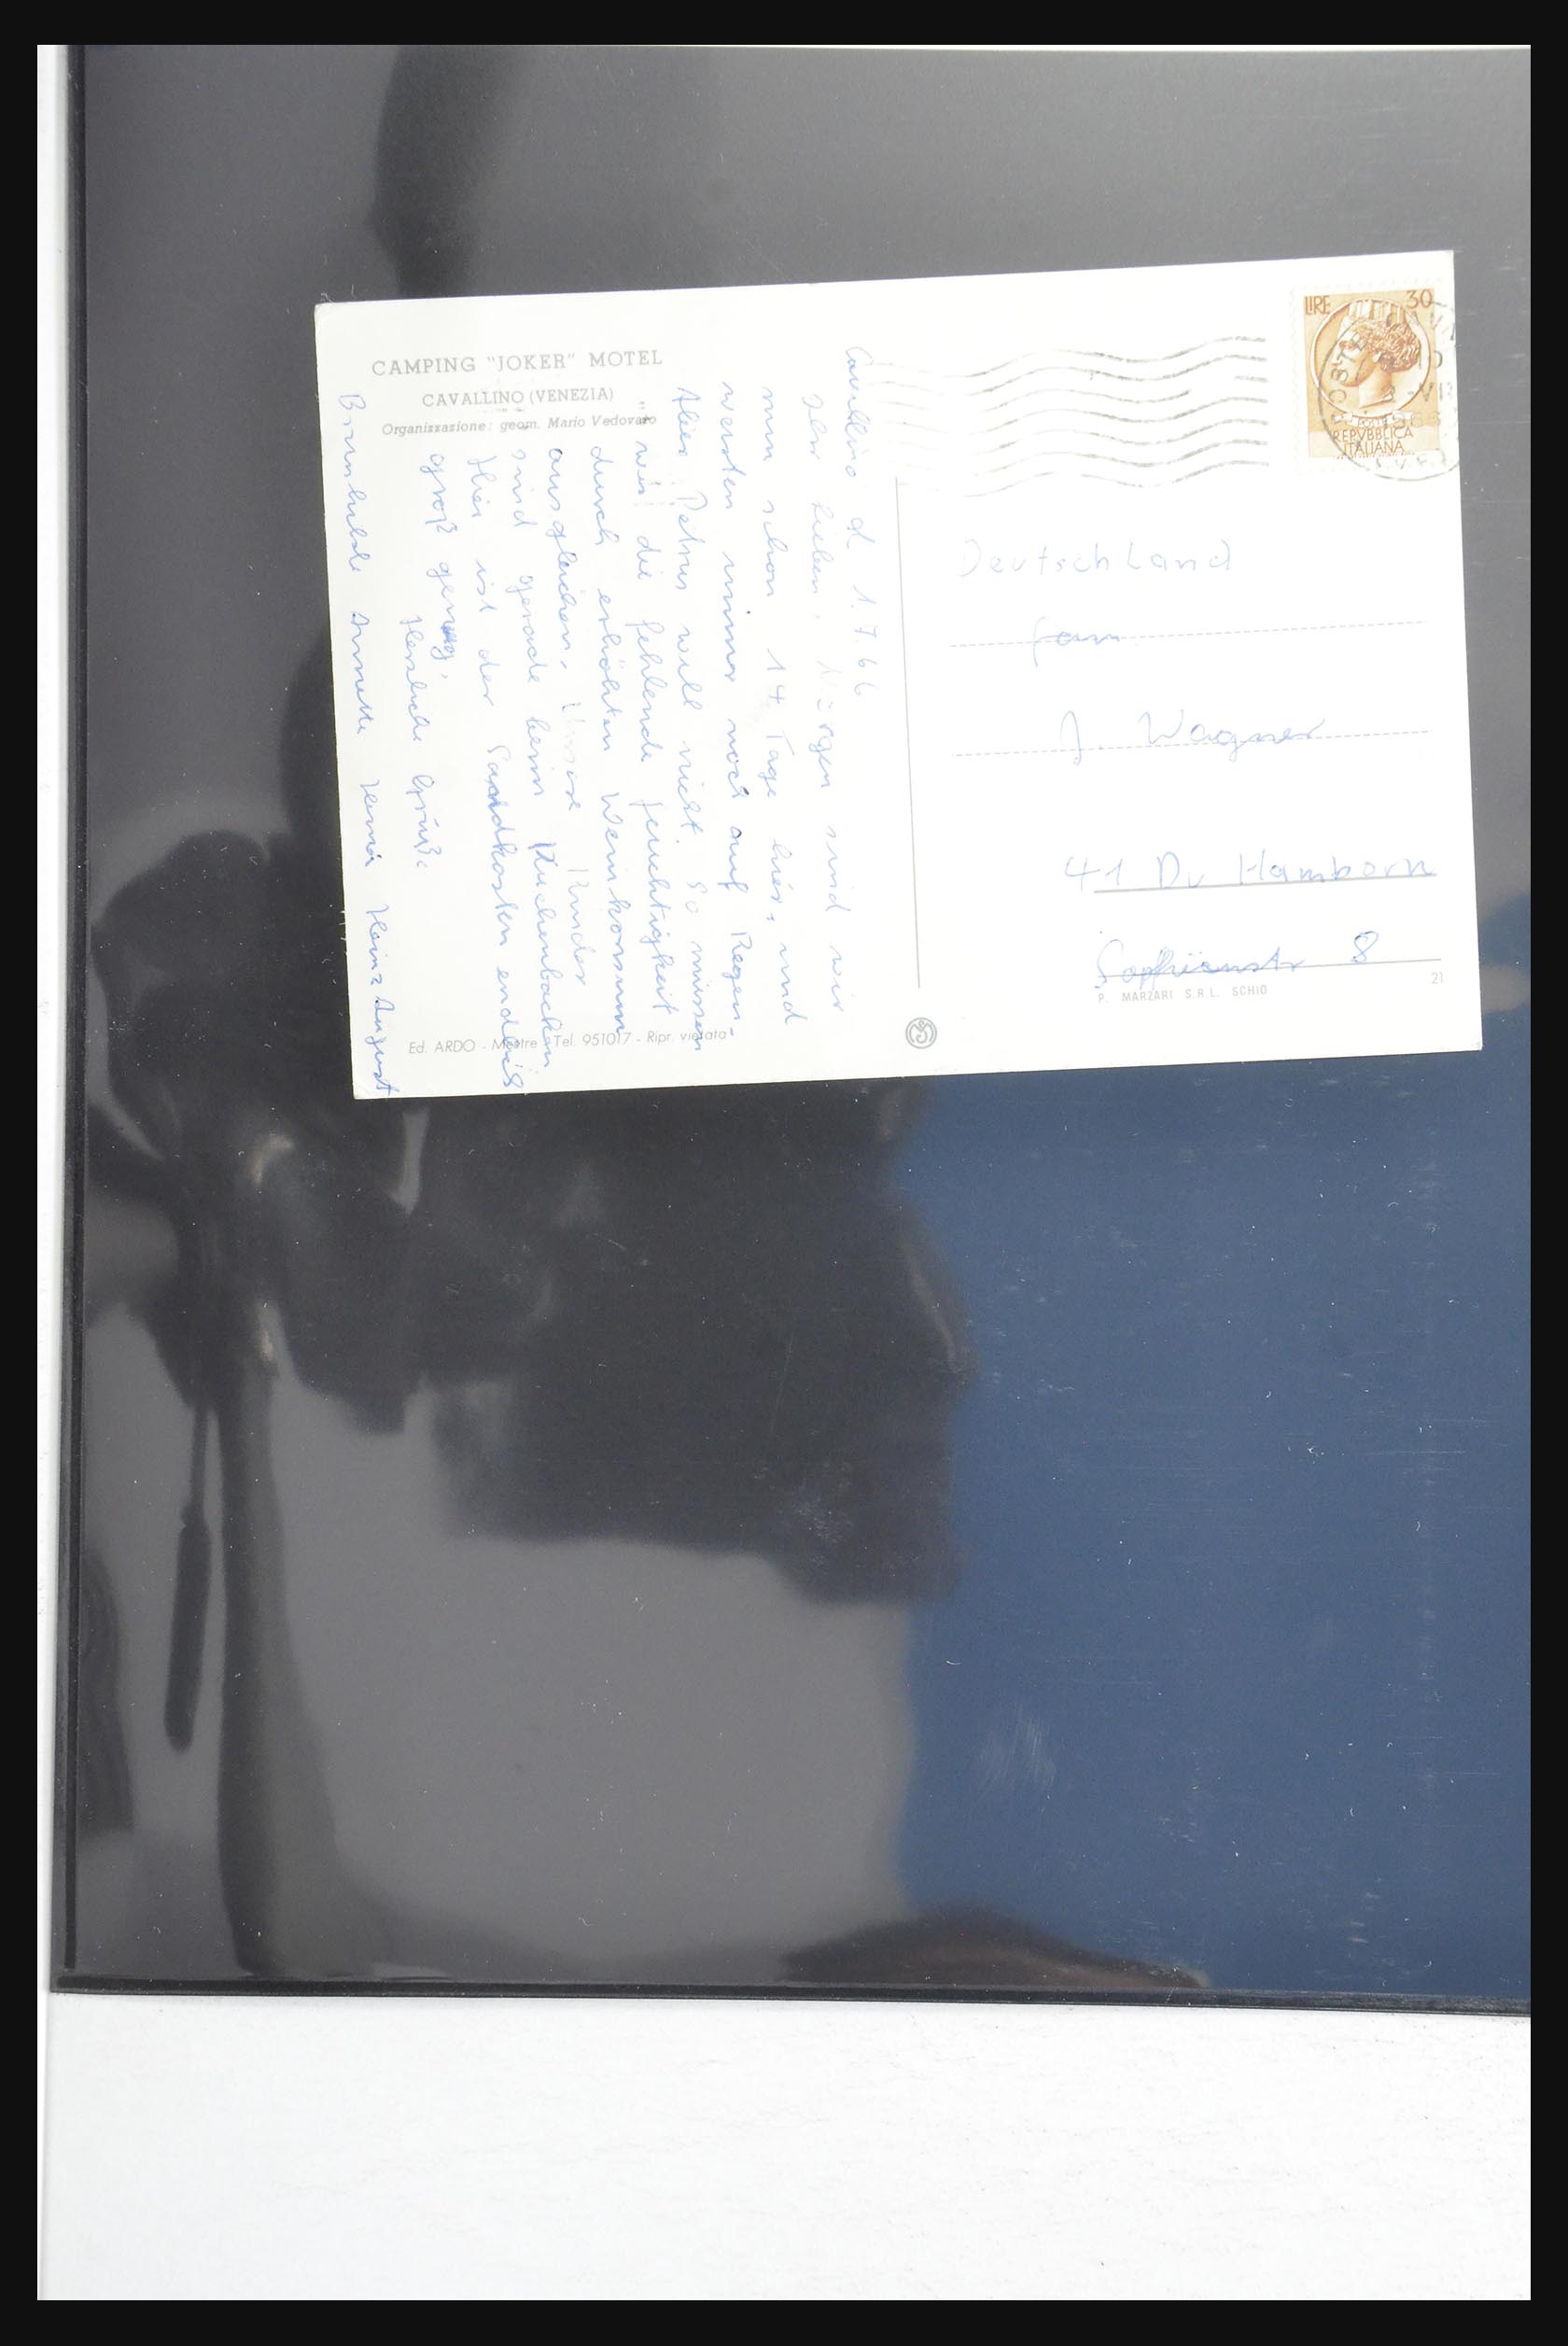 CAMPING "JOKER" MOTEL
CAVALLINO (VENEZIA)
Organizzazione: geom. Mario Vedovato
Cavallino d. 1.7.66
Ihr Lieben! Morgen sind wir
nun schon 14 Tage hier, und
warten immer noch auf Regen-
Aber Petrus will nicht. So müssen
wir die fehlende Feuchtigkeit
durch erhöhten Weinkonsum
ausgleichen. Unsere Kinder
sind gerade beim Kuchenbacken
Hier ist der Sandkasten endlos
groß genug.
Herzliche Grüße
Brunhilde Annette Heinz August
LIRE 30
REPVBBLICA
ITALIANA
1966
Deutschland
Fam.
J. Wagner
41 Du Hamborn
Sophienstr 8
P. MARZARI S.R.L. SCHIO
21
Ed. ARDO - Mestre - Tel. 951017 - Ripr. vietata